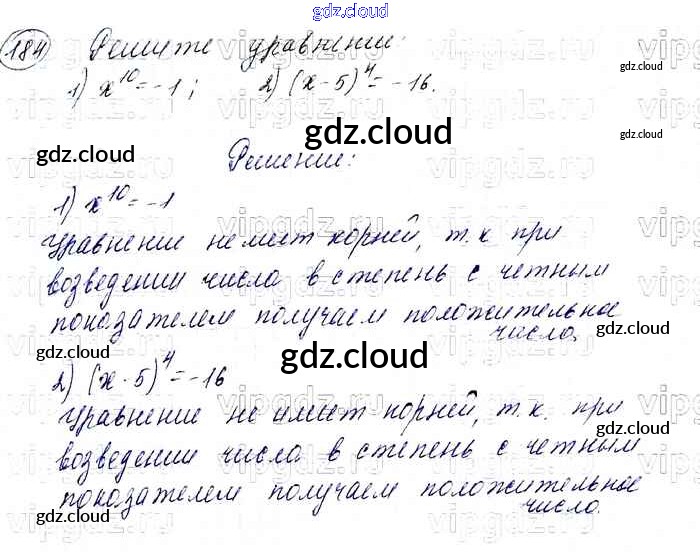 gdz.cloud
184 Решите уравнение:
1) x^10 = -1; 2) (x - 5)^4 = -16.
gdz.cloud
gdz.cloud
gdz.cloud
gdz.cloud
Решение:
1) x^10 = -1
Уравнение не имеет корней, т.к. при
возведении числа в степень с четным
показателем получаем положительное
число.
gdz.cloud
2) (x - 5)^4 = -16
gdz.cloud
gdz.cloud
Уравнение не имеет корней, т.к. при
возведении числа в степень с четным
gdz.cloud
показателем получаем положительное
число.
gdz.cloud
gdz.cloud